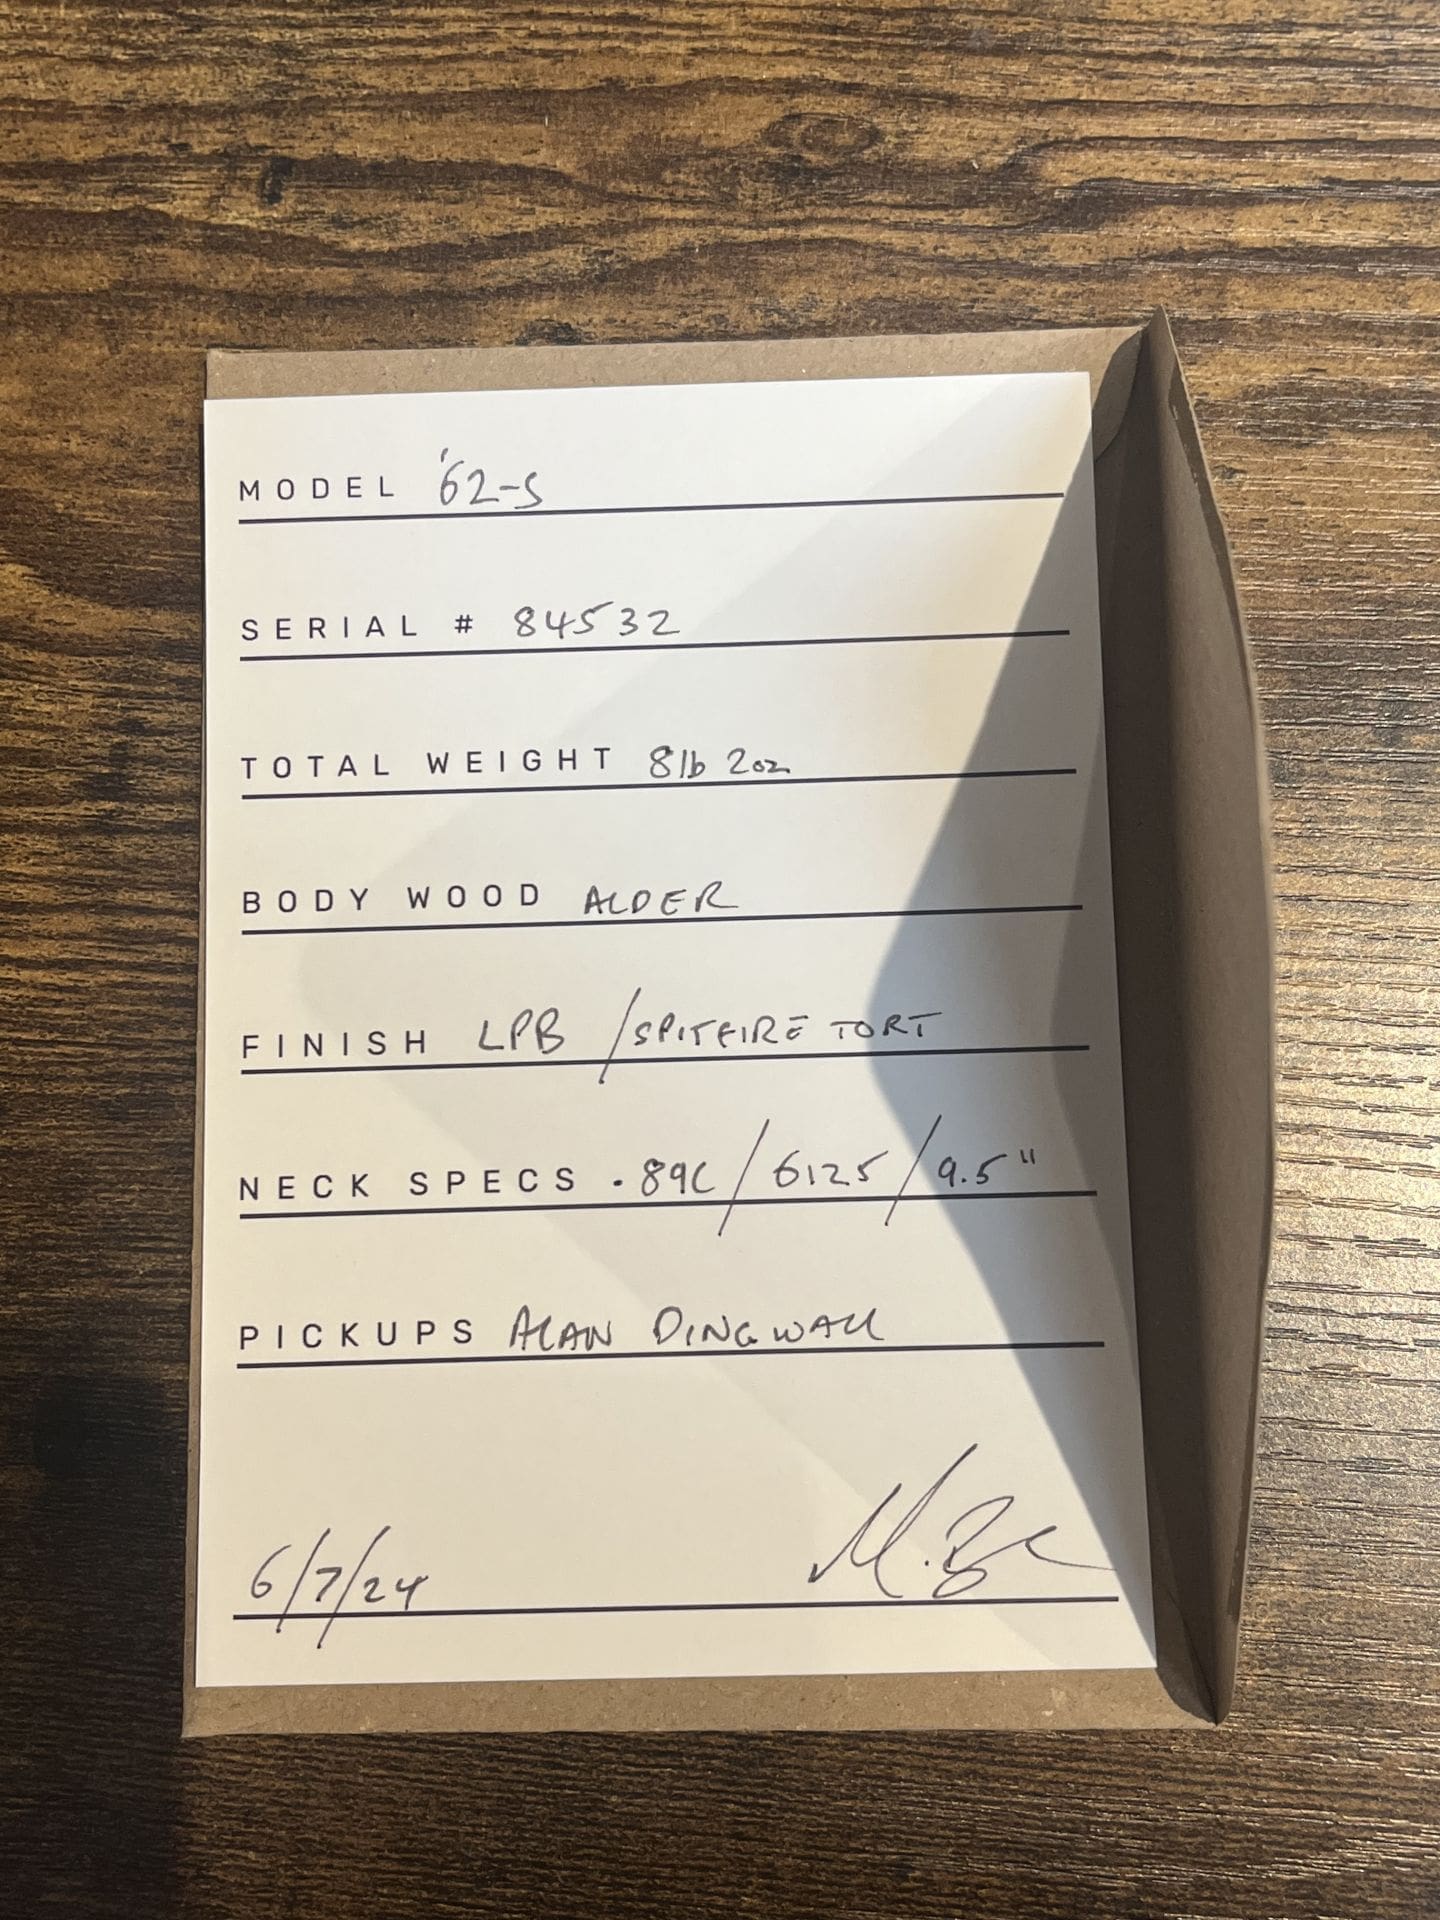 MODEL '62-S
SERIAL # 84532
TOTAL WEIGHT 8lb 2oz
BODY WOOD ALDER
FINISH LPB / SPITFIRE TORT
NECK SPECS .89C / 6125 / 9.5"
PICKUPS ALAN DINGWALL
6/7/24